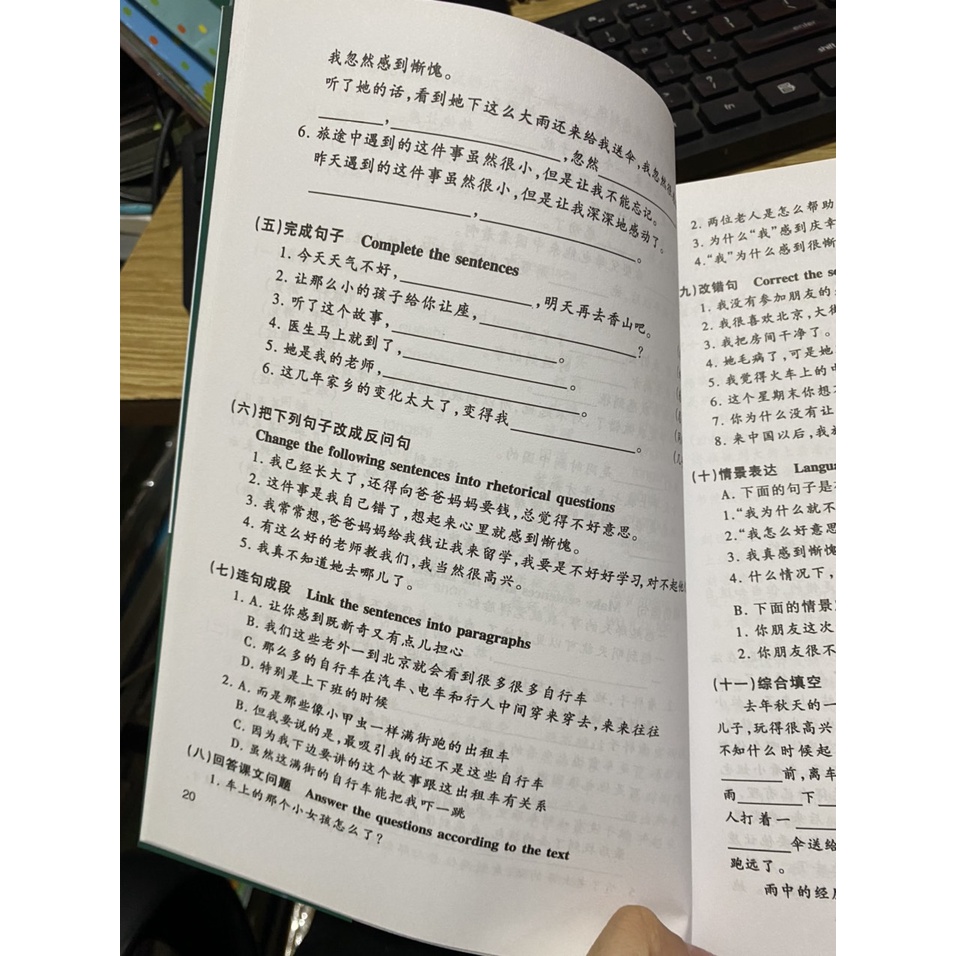 我忽然感到惭愧。
听了她的话,看到她下这么大雨还来给我送伞,我忽然很
________,____________________,忽然____________
6. 旅途中遇到的这件事虽然很小,但是让我不能忘记。
昨天遇到的这件事虽然很小,但是让我深深地感动了。
____________________,____________________。
(五)完成句子 Complete the sentences
1. 今天天气不好,____________________,明天再去香山吧。
2. 让那么小的孩子给你让座,____________________?
3. 听了这个故事,____________________。
4. 医生马上就到了,____________________。
5. 她是我的老师,____________________。
6. 这几年家乡的变化太大了,变得我____________________。
(六)把下列句子改成反问句
Change the following sentences into rhetorical questions
1. 我已经长大了,还得向爸爸妈妈要钱,总觉得不好意思。
2. 这件事是我自己错了,想起来心里就感到惭愧。
3. 我常常想,爸爸妈妈给我钱让我来留学,我要是不好好学习,对不起他
4. 有这么好的老师教我们,我当然很高兴。
5. 我真不知道她去哪儿了。
(七)连句成段 Link the sentences into paragraphs
1. A. 让你感到既新奇又有点儿担心
B. 我们这些老外一到北京就会看到很多很多自行车
C. 那么多的自行车在汽车、电车和行人中间穿来穿去,来来往往
D. 特别是上下班的时候
2. A. 而是那些像小甲虫一样满街跑的出租车
B. 但我要说的是,最吸引我的还不是这些自行车
C. 因为我下边要讲的这个故事跟这出租车有关系
D. 虽然这满街的自行车能把我吓一跳
(八)回答课文问题 Answer the questions according to the text
1. 车上的那个小女孩怎么了?
20
2. 两位老人是怎么帮助
3. 为什么“我”感到庆幸
4. “我”为什么感到很惭
九)改错句 Correct the se
1. 我没有参加朋友的
2. 我很喜欢北京,大街
3. 我把房间干净了。
4. 她毛病了,可是她
5. 我觉得火车上的
6. 这个星期末你想
7. 你为什么没有让
8. 来中国以后,我
(十)情景表达 Langu
A. 下面的句子是
1. “我为什么就不
2. “我怎么好意思
3. 我真感到惭愧
4. 什么情况下,
B. 下面的情景
1. 你朋友这次
2. 你朋友很不
(十一)综合填空
去年秋天的一
儿子,玩得很高兴
不知什么时候起
________前,离车
雨________下____
人打着一________
________伞送给
跑远了。
雨中的经历